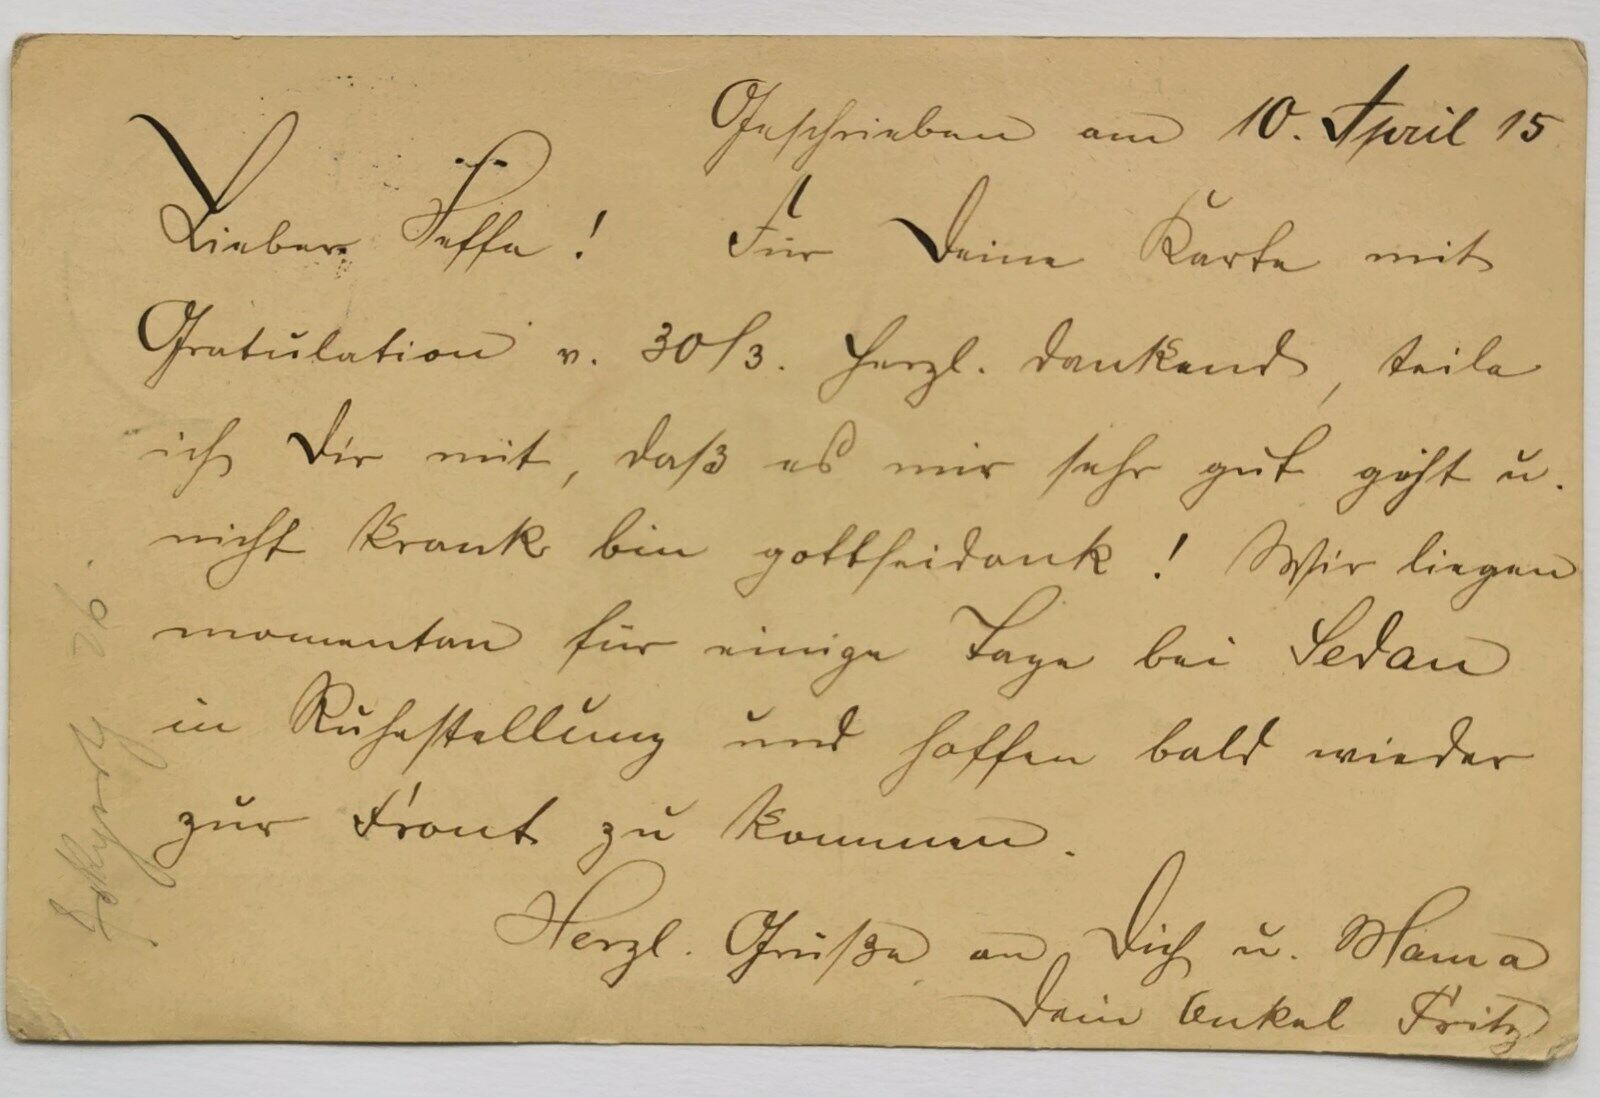 Geschrieben am 10. April 15
Lieber Seffe! Für Deine Karte mit
Gratulation v. 30/3. herzl. dankend, teile
ich Dir mit, daß es mir sehr gut geht u.
nicht krank bin gottseidank! Wir liegen
momentan für einige Tage bei Sedan
in Ruhestellung und hoffen bald wieder
zur Front zu kommen.
Herzl. Grüße an Dich u. Mama
Dein Onkel Fritz